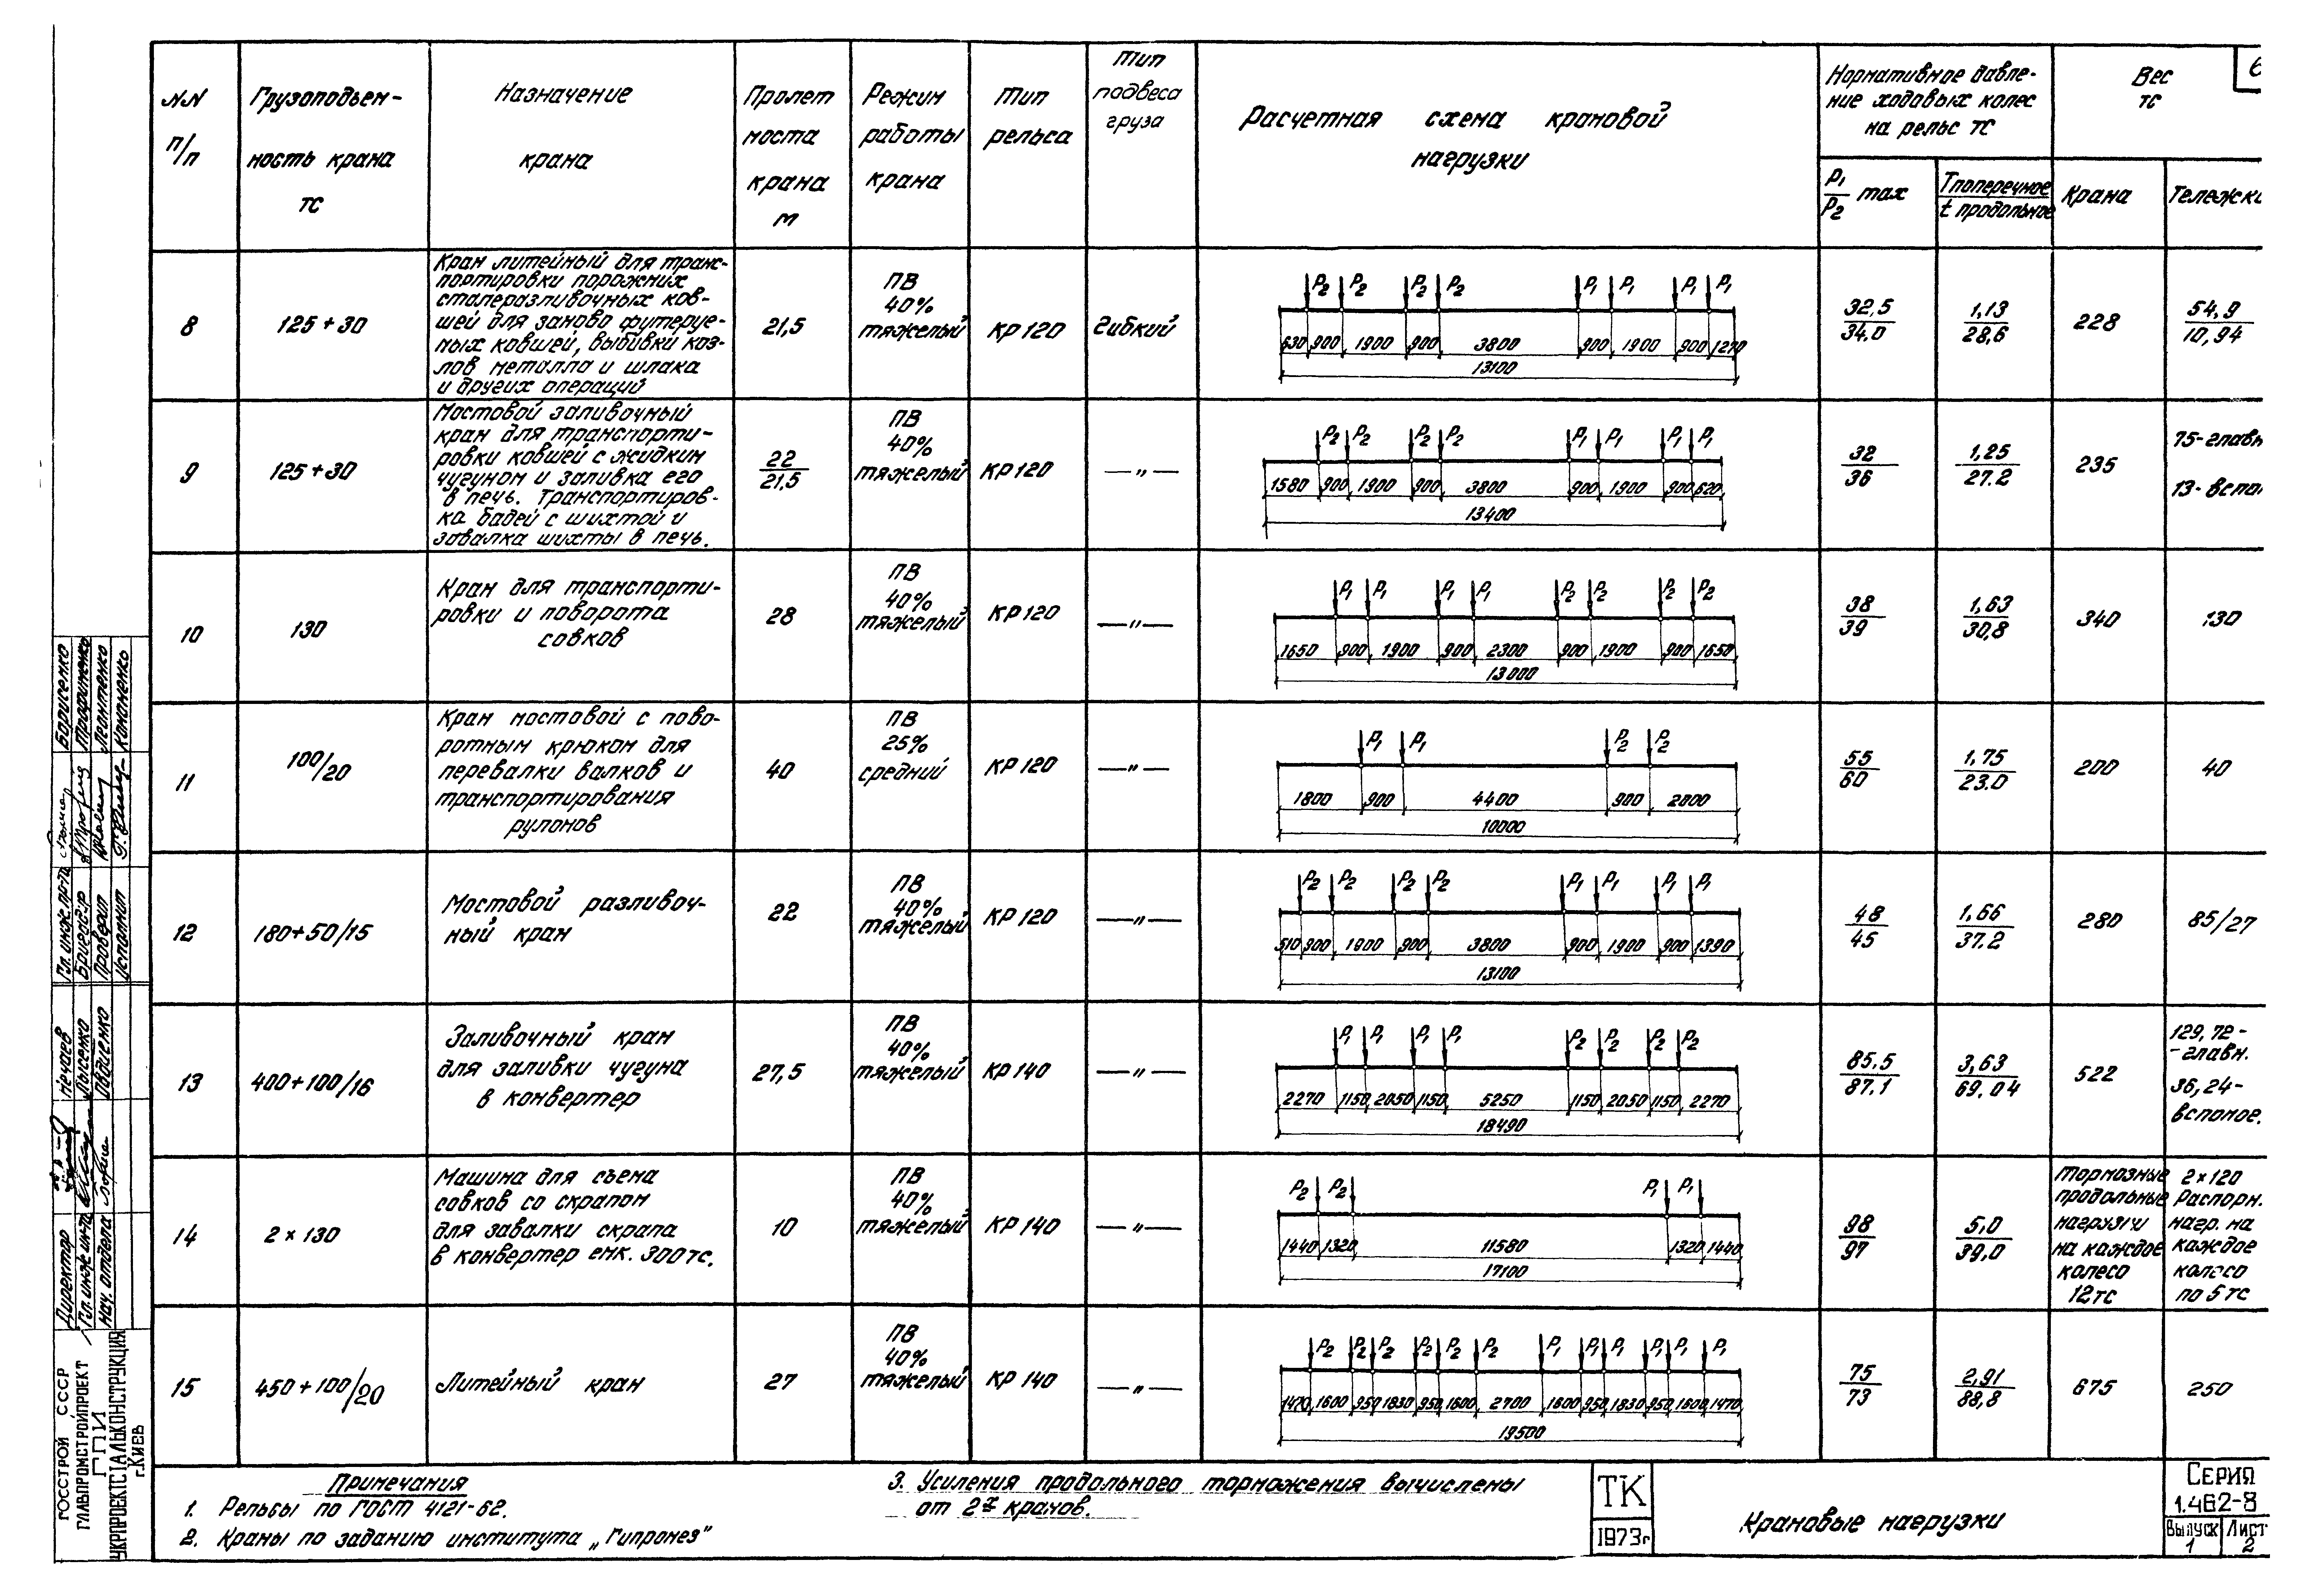 NN п/п
Грузоподъем-
ность крана
тс
Назначение
крана
Пролет
моста
крана
м
Режим
работы
крана
Тип
рельса
Тип
подвеса
груза
Расчетная схема крановой
нагрузки
Нормативное давле-
ние ходовых колес
на рельс тс
P1/P2 max
Tпоперечное/t продольное
Вес
тс
6
Крана
Тележки
8
125+30
Кран литейный для транс-
портировки порожних
сталеразливочных ков-
шей для заново футеруе-
мых ковшей, выбивки коз-
лов металла и шлака
и других операций
21,5
ПВ
40%
тяжелый
КР 120
Гибкий
P2 P2 P2 P2 P1 P1 P1 P1
630 900 1900 900 3800 900 1900 900 1270
13100
32,5/34,0
1,13/28,6
228
54,9/10,94
9
125+30
Мостовой заливочный
кран для транспорти-
ровки ковшей с жидким
чугуном и заливка его
в печь. Транспортиров-
ка бадей с шихтой и
завалка шихты в печь.
22/21,5
ПВ
40%
тяжелый
КР 120
—"—
P2 P2 P2 P2 P1 P1 P1 P1
1580 900 1900 900 3800 900 1900 900 620
13400
32/36
1,25/27.2
235
75-главн
13-вспо
10
130
Кран для транспорти-
ровки и поворота
совков
28
ПВ
40%
тяжелый
КР 120
—"—
P1 P1 P1 P1 P2 P2 P2 P2
1650 900 1900 900 2300 900 1900 900 1650
13000
38/39
1,63/30,8
340
130
11
100/20
Кран мостовой с пово-
ротным крюком для
перевалки валков и
транспортирования
рулонов
40
ПВ
25%
средний
КР 120
—"—
P1 P1 P2 P2
1800 900 4400 900 2000
10000
55/60
1,75/23.0
200
40
12
180+50/15
Мостовой разливоч-
ный кран
22
ПВ
40%
тяжелый
КР 120
—"—
P2 P2 P2 P2 P1 P1 P1 P1
510 900 1900 900 3800 900 1900 900 1390
13100
48/45
1,66/37.2
280
85/27
13
400+100/16
Заливочный кран
для заливки чугуна
в конвертер
27,5
ПВ
40%
тяжелый
КР 140
—"—
P1 P1 P1 P1 P2 P2 P2 P2
2270 1150 2050 1150 5250 1150 2050 1150 2270
18490
85.5/87.1
3,63/69.04
522
129,72-
-главн.
36,24-
вспомог.
14
2×130
Машина для съема
совков со скрапом
для завалки скрапа
в конвертер емк. 300тс.
10
ПВ
40%
тяжелый
КР 140
—"—
P2 P2 P1 P1
1440 1320 11580 1320 1440
17100
98/97
5,0/39,0
Тормозные
продольные
нагрузки
на каждое
колесо
12тс
2×120
Распорн.
нагр. на
каждое
колесо
по 5 тс
15
450+100/20
Литейный кран
27
ПВ
40%
тяжелый
КР 140
—"—
P2 P2 P2 P2 P2 P2 P1 P1 P1 P1 P1 P1
1470 1600 950 1830 950 1600 2700 1600 950 1830 950 1600 1470
19500
75/73
2,91/88,8
675
250
Примечания
1. Рельсы по ГОСТ 4121-62.
2. Краны по заданию института „Гипромез"
3. Усиления продольного торможения вычислены
от 2х кранов.
ТК
1973г
Крановые нагрузки
Серия
1.462-8
Выпуск 1
Лист 2
Госстрой СССР
Главпромстройпроект
ГПИ
Укрпроектстальконструкция
г.Киев
Директор
Нечаев
Гл. инж. ин-та
Лысенко
Нач. отдела
Гл. инж. пр-та
Борисенко
Бригад-р
Проверил
Леонтенко
Исполнил
Кононенко